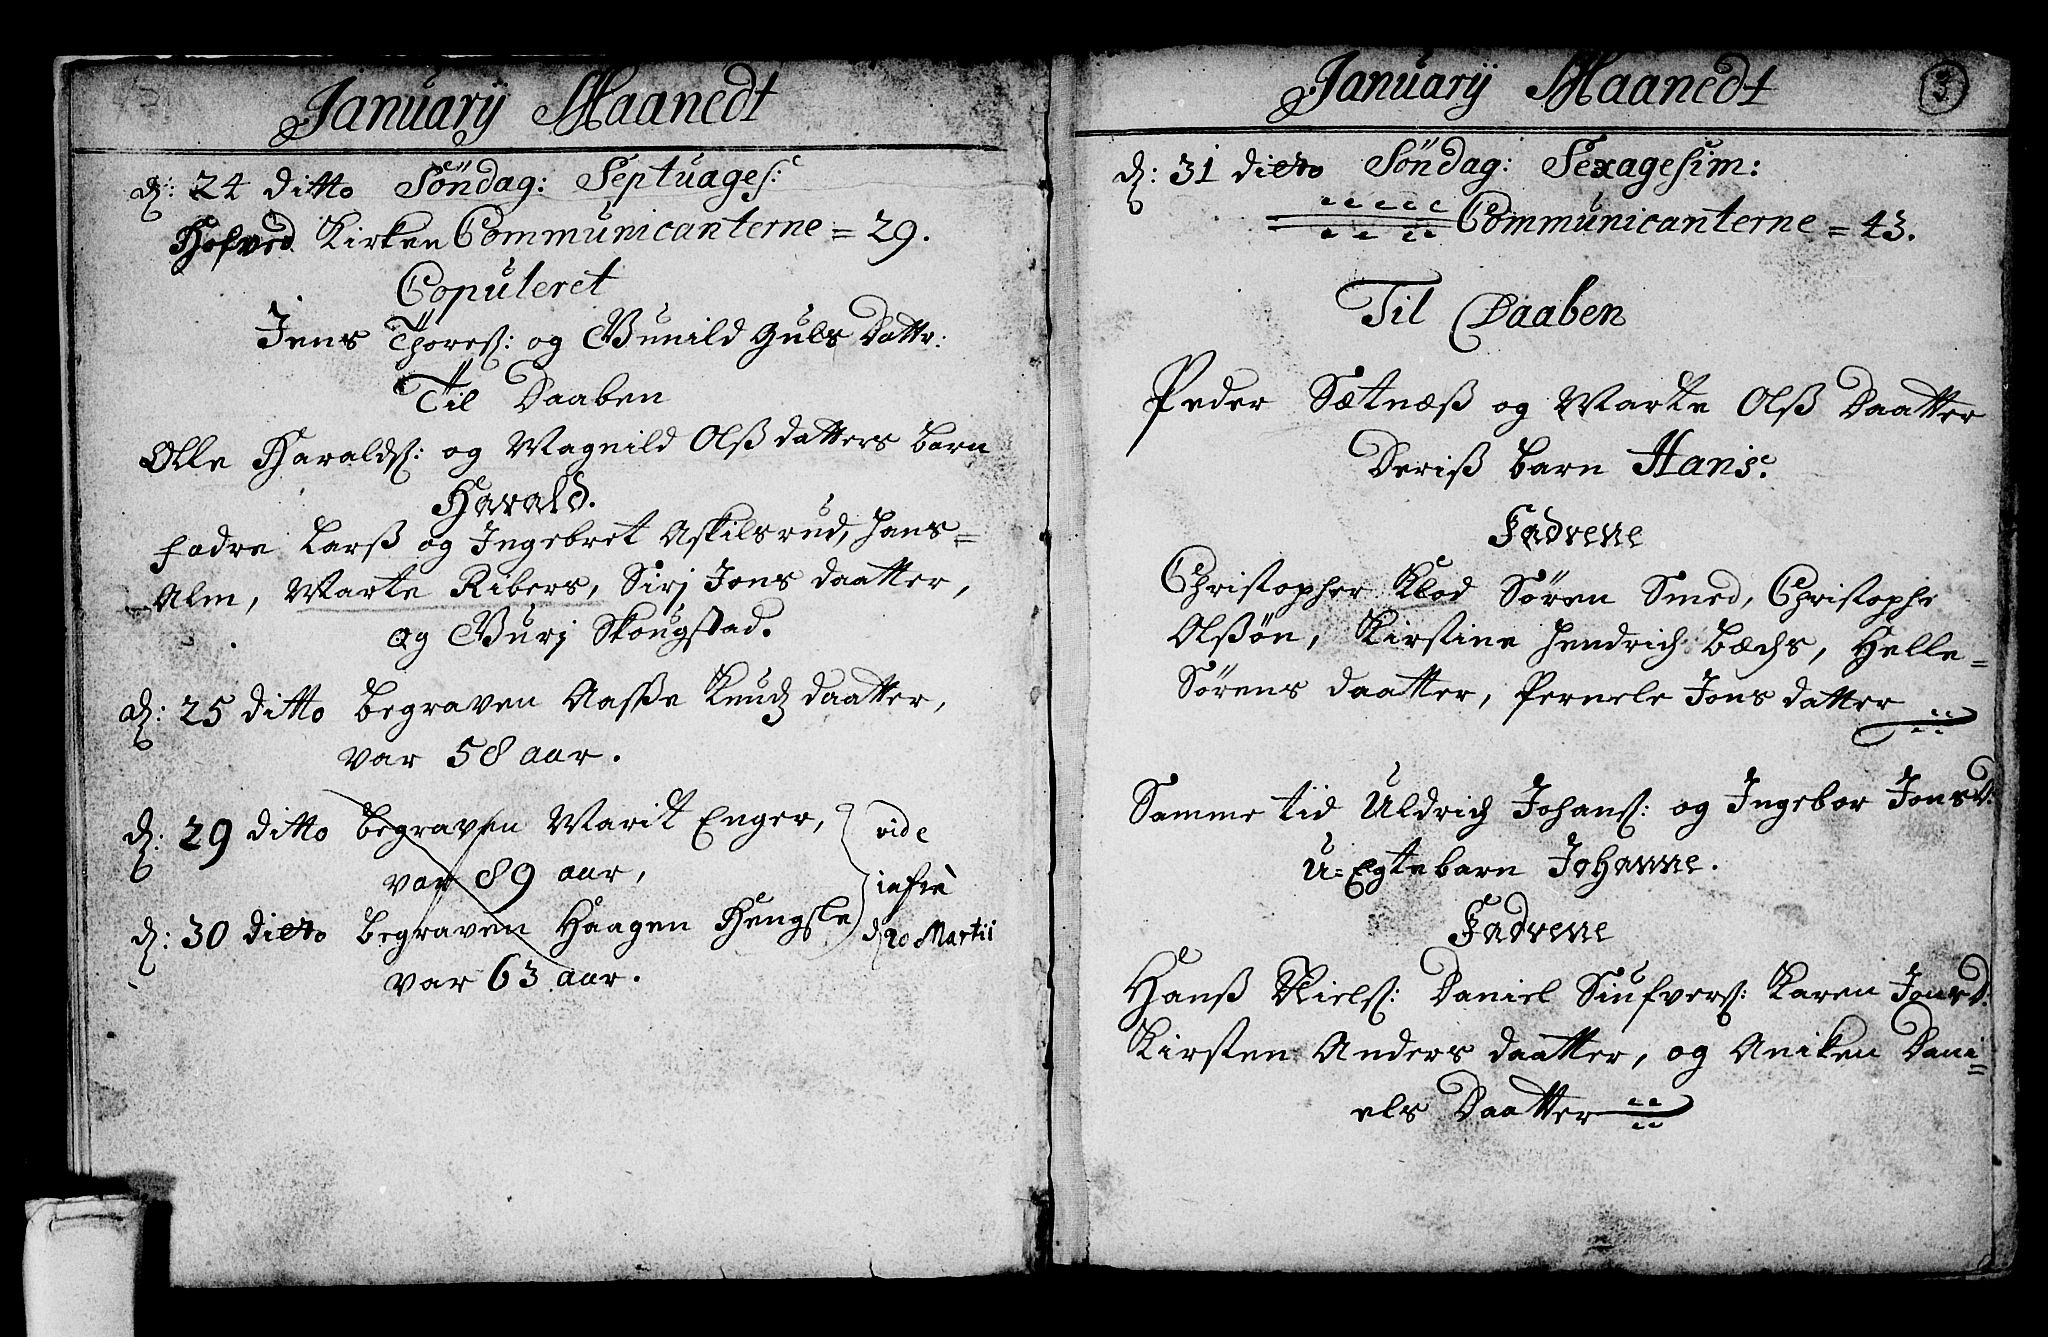 Januarij Maanedt
d: 24 ditto Söndag: Septuages:
Hofved Kirken Communicanterne = 29.
Copuleret
Jens Thores: og Gunild Guls Dattr:
Til Daaben
Olle Haralds: og Magnild Olß datters barn
Harald.
fadre Larß og Ingebret Askilsrud, Hans=
Alm, Marte Ribers, Sirj Jons daatter,
og Gurj Skougstad.
d: 25 ditto begraven Aasße Knudz daatter,
var 58 aar.
d: 29 ditto begraven Marit Enger,
var 89 aar,
d: 30 ditto begraven Haagen Hengsle
var 63 aar.
vide
infra
d 20 Martii
Januarij Maanedt
3
d: 31 ditto Söndag: Sexagesim:
Communicanterne = 43.
Til Daaben
Peder Sætnæß og Marte Olß Daatter
Deriß barn Hans.
Fadrene
Christopher Klod Sören Smed, Christophr
Olßøn, Kirstine Hendrich Bæchs, Helle=
Sørens daatter, Pernele Jons datter
Samme tid Uldrich Johans: og Ingebor Jons D:
U=Egte barn Johanne.
Fadrene
Hanß Niels: Daniel Siufvers: Karen Jons D:
Kirsten Anders daatter, og Aniken Dani=
els Daatter